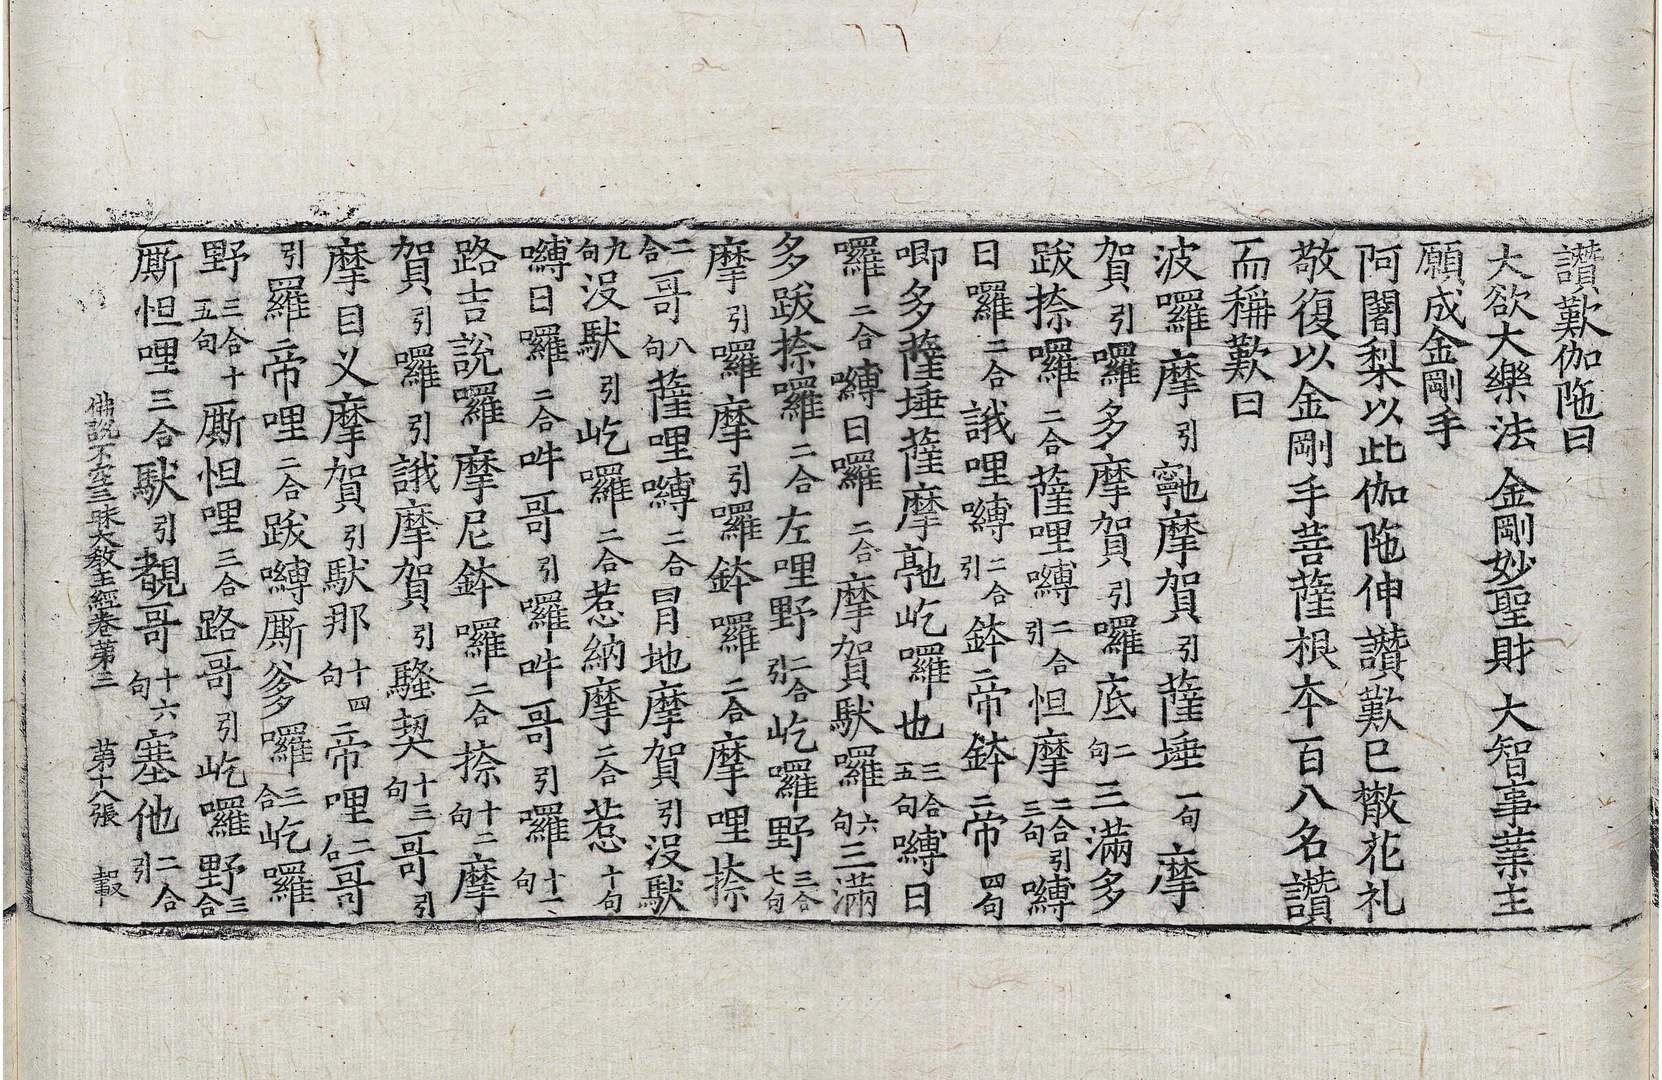 讚歎伽陁曰
大欲大樂法 金剛妙聖財 大智事業主
願成金剛手
阿闍梨以此伽陁伸讚歎已散花礼
敬復以金剛手菩薩根本百八名讚
而稱歎曰
波囉摩引 摩賀引薩埵一句摩
賀引囉多摩賀引囉底二句三滿多
跋捺囉二合薩哩嚩二合引怛摩二合引三句嚩
日囉二合誐哩嚩二合引鉢帝鉢帝四句
唧多薩埵薩摩 屹囉也三合五句嚩日
囉二合嚩日囉二合摩賀馱囉六句三滿
多跋捺囉二合左哩野二合引屹囉野三合七句
摩引囉摩引囉鉢囉二合摩哩捺
二合哥八句薩哩嚩二合冐地摩賀引沒馱
九句沒馱引屹囉二合惹納摩二合惹十句
嚩日囉二合吽哥引囉吽哥引囉十一句
路吉說囉摩尼鉢囉二合捺十二句摩
賀引囉引誐摩賀引騷契十三句哥引
摩目乂摩賀引馱那十四句帝哩二合哥
引羅帝哩二合跋嚩厮爹囉三合屹囉
野三合十五句厮怛哩三合路哥引屹囉野三合
厮怛哩三合馱引覩哥十六句塞他二合引
佛說不空三昧大教王經卷第二 第十八張